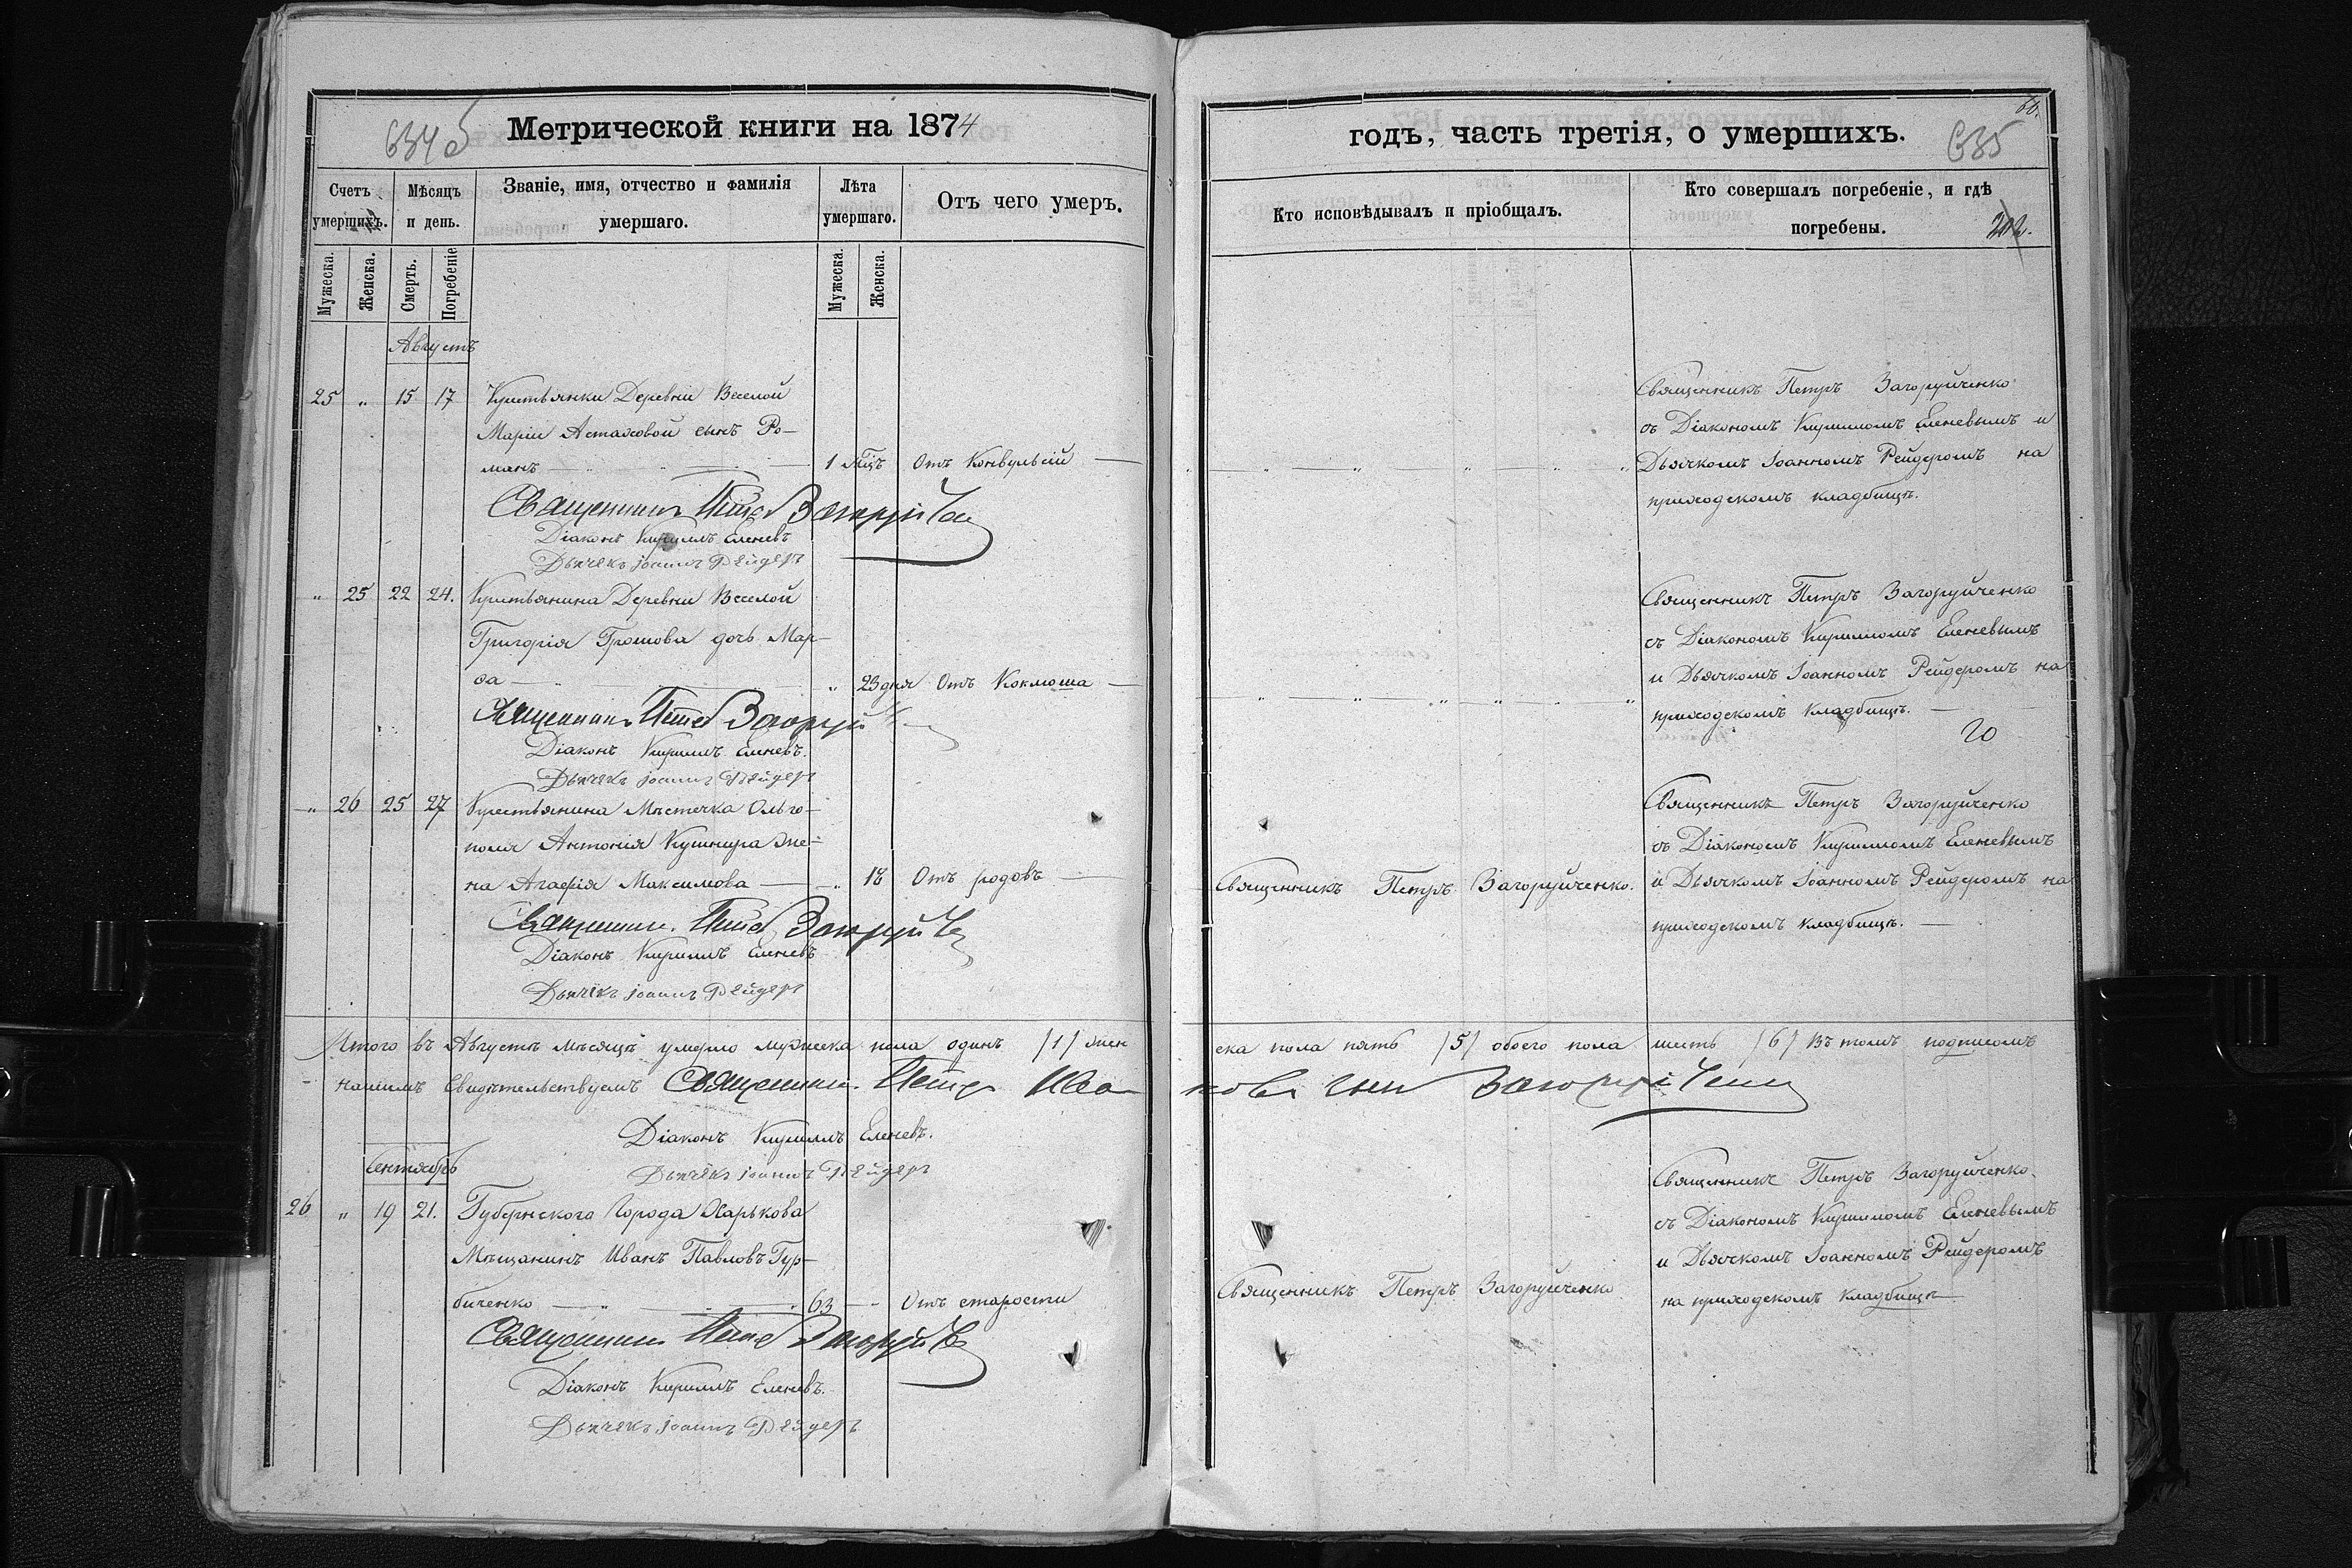 634 б
Метрической книги на 1874
Счетъ умершихъ.
Мѣсяцъ и день.
Званіе, имя, отчество и фамилія умершаго.
Лѣта умершаго.
Отъ чего умеръ.
Мужеска.
Женска.
Смерть.
Погребеніе
Мужеска.
Женска.
Августъ
25 „ 15 17 Крестьянки Деревни Веселой
Маріи Астаховой сынъ Ро-
манъ 1 мѣц Отъ Конвульсій
Священникъ Петръ Загоруйченко
Діаконъ Кириллъ Еленевъ
Дьячекъ Іоаннъ Рейдеръ
„ 25 22 24. Крестьянина Деревни Веселой
Григорія Грошова дочь Мар-
ѳа „ 23 дня Отъ Коклюша
Священникъ Петръ Загоруйченко
Діаконъ Кириллъ Еленевъ.
Дьячекъ Іоаннъ Рейдеръ
„ 26 25 27 Крестьянина Мѣстечка Ольго-
поля Антонія Кушнира же-
на Агафія Максимова „ 18 Отъ родовъ
Священник. Петръ Загоруйченко
Діаконъ Кириллъ Еленевъ
Дьячекъ Іоаннъ Рейдеръ
Итого въ Августѣ мѣсяцѣ умерло мужеска пола одинъ /1/ жен
нашимъ свидѣтельствуемъ Священник. Петръ Ива
Діаконъ Кириллъ Еленевъ.
Дьячекъ Іоаннъ Рейдеръ
Сентябрь
26 „ 19 21. Губернскаго Города Харькова
Мѣщанинъ Иванъ Павловъ Гур-
биченко „ 63 „ Отъ старости
Священникъ Петръ Загоруйченко
Діаконъ Кириллъ Еленевъ.
Дьячекъ Іоаннъ Рейдеръ
годъ, часть третія, о умершихъ.
635
Кто исповѣдывалъ и пріобщалъ.
Кто совершалъ погребеніе, и гдѣ погребены.
202.
Священникъ Петръ Загоруйченко
съ Діакономъ Кирилломъ Еленевымъ и
Дьячкомъ Іоанномъ Рейдеромъ на
приходскомъ кладбищѣ.
Священникъ Петръ Загоруйченко
съ Діакономъ Кирилломъ Еленевымъ
и Дьячкомъ Іоанномъ Рейдеромъ на
приходскомъ кладбищѣ.
20
Священникъ Петръ Загоруйченко
съ Діакономъ Кирилломъ Еленевымъ
Священникъ Петръ Загоруйченко. и Дьячкомъ Іоанномъ Рейдеромъ на
приходскомъ кладбищѣ.
ска пола пять /5/ обоего пола шесть /6/ въ томъ подписомъ
новъ сынъ Загоруйченко
Священникъ Петръ Загоруйченко
съ Діакономъ Кирилломъ Еленевымъ
и Дьячкомъ Іоанномъ Рейдеромъ
Священникъ Петръ Загоруйченко на приходскомъ кладбищѣ